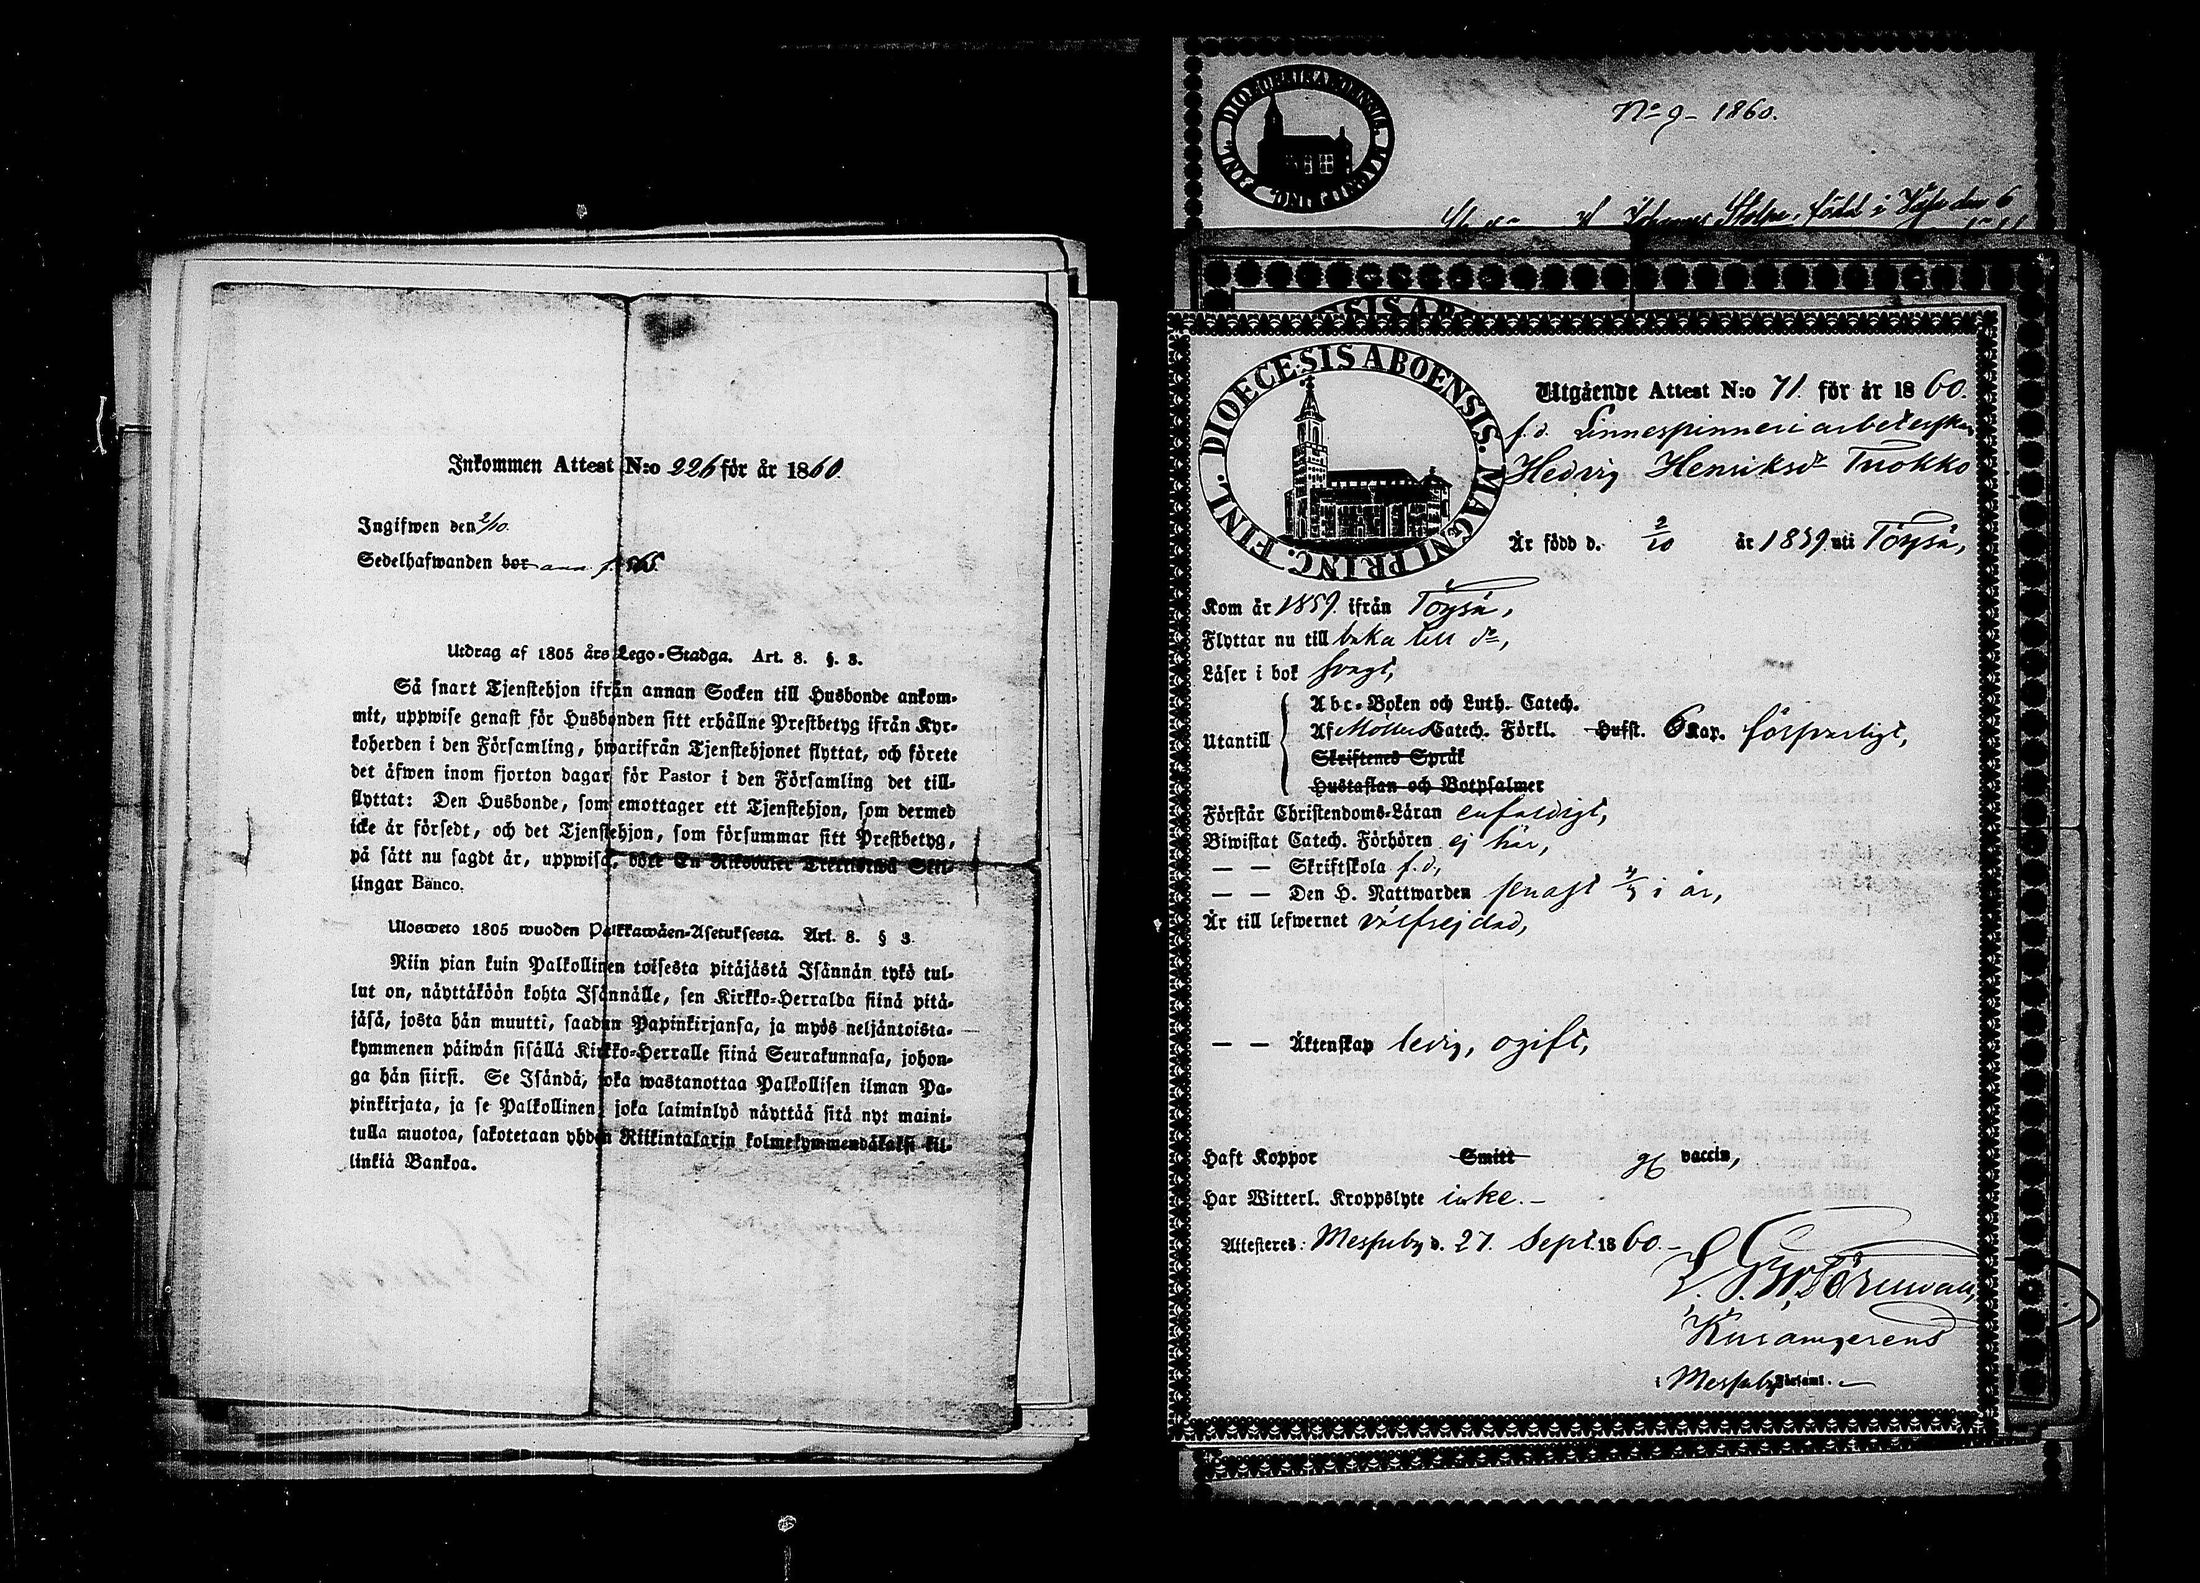 Inkommen Attest N:o 226 för år 1860.
Ingifwen den 2/10.
Sedelhafwanden bor ann. f.
Utdrag af 1805 års Lego-Stadga. Art. 8. §. 3.
Så snart Tjenstehjon ifrån annan Socken till Husbonde ankom-
mit, uppwise genast för Husbonden sitt erhållne Prestbetyg ifrån Kyr-
koherden i den Församling, hwarifrån Tjenstehjonet flyttat, och förete
det äfwen inom fjorton dagar för Pastor i den Församling det till-
flyttat: Den Husbonde, som emottager ett Tjenstehjon, som dermed
icke är försedt, och det Tjenstehjon, som försummar sitt Prestbetyg,
på sätt nu sagdt är, uppwisa, böte En Riksdaler Trettiotwå Skil-
lingar Banco.
Ulosweto 1805 wuoden Palkkawäen-Asetuksesta. Art. 8. § 3.
Niin pian kuin Palkollinen toisesta pitäjästä Isännän tykö tul-
lut on, näyttäköön kohta Isännälle, sen Kirkko-Herralda siinä pitä-
jäsä, josta hän muutti, saadun Papinkirjansa, ja myös neljäntoista-
kymmenen päiwän sisällä Kirkko-Herralle siinä Seurakunnasa, johon-
ga hän siirsi. Se Isändä, joka wastanottaa Palkollisen ilman Pa-
pinkirjata, ja se Palkollinen, joka laiminlyö näyttää sitä nyt maini-
tulla muotoa, sakotetaan yhden Riikintalarin kolmekymmendäkaksi kil-
linkiä Bankoa.
No 9 - 1860.
Johannes Stolpe, född i
DIOECESIS ABOENSIS. MAGNI PRINC. FINL.
Utgående Attest N:o 71. för år 1860.
f.d. Linnespinneriarbeterskan
Hedvig Henriksdr Tuokko
Är född d. 2/10 år 1839 uti Töysä,
Kom år 1859. ifrån Töysä,
Flyttar nu till baka till do,
Läser i bok svagt,
Utantill
Abc-Boken och Luth. Catech.
Af Möllers Catech. Förkl. Hufst. 6 Kap. försvarligt,
Skriftenes Språk
Hustaflan och Botpsalmer
Förstår Christendoms-Läran enfaldigt,
Biwistat Catech. Förhören ej här,
— — Skriftskola f.d,
— — Den H. Nattwarden senast i år,
Är till lefwernet välfrejdad,
— — Äktenskap ledig, ogift,
Haft Koppor Smitt gg vaccin,
Har Witterl. Kroppslyte icke. —
Attesteras: Messuby d. 27. Sept. 1860. —
Törnwall,
i Messuby Församl. —